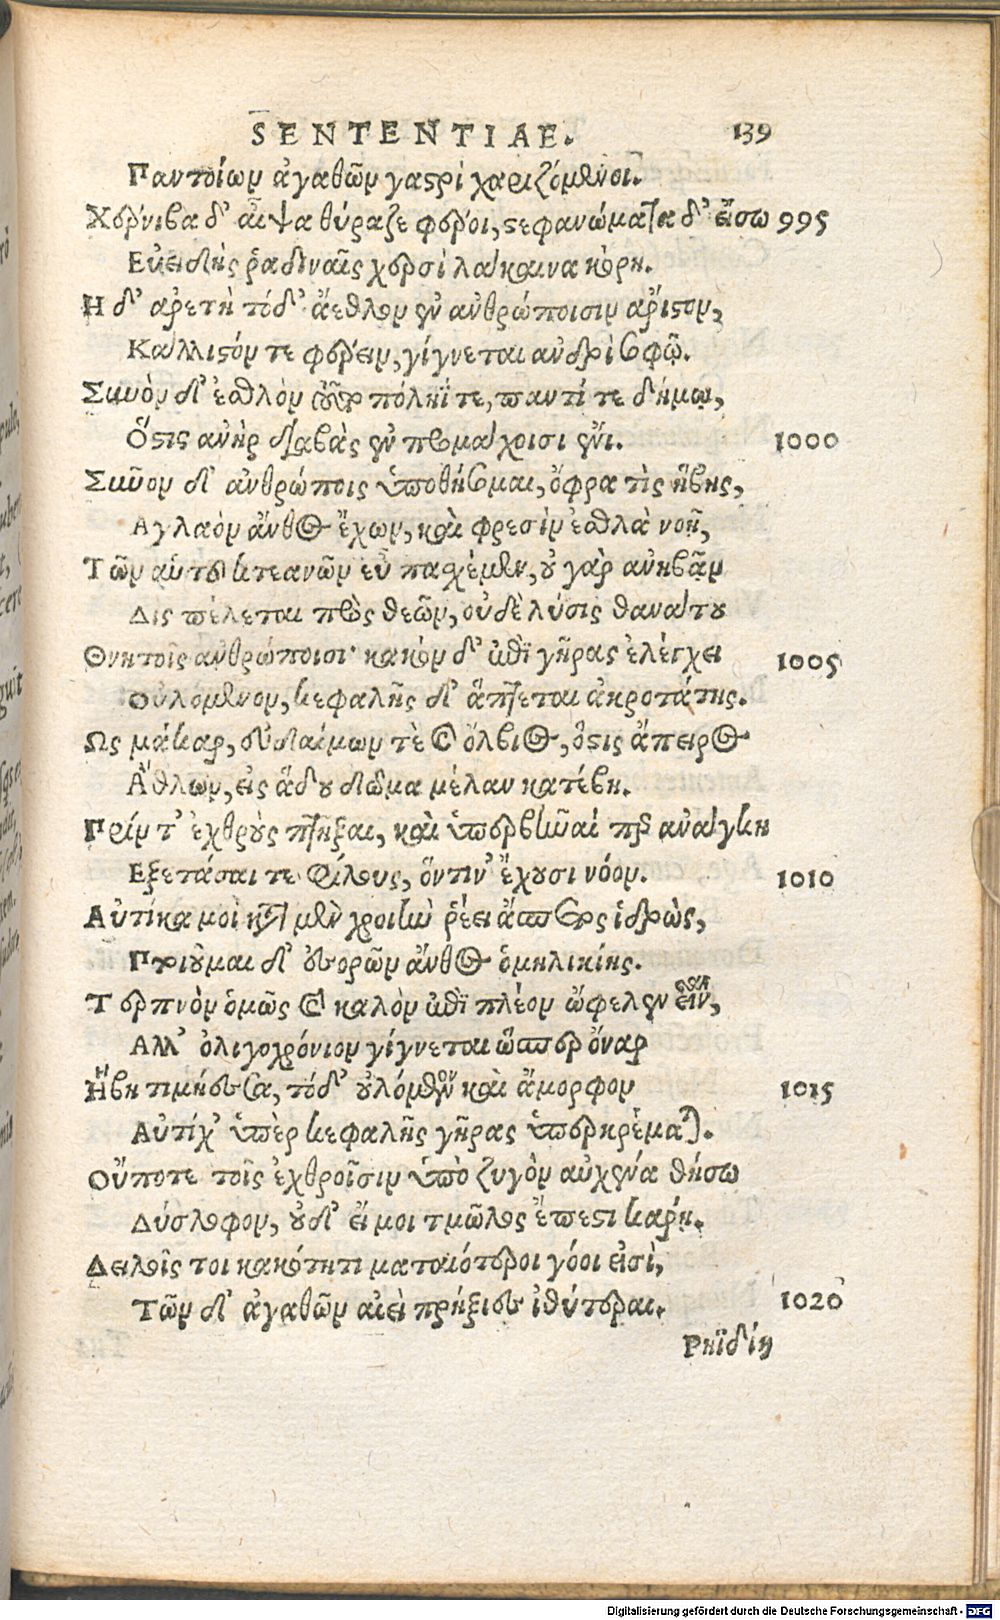 SENTENTIAE. 139
Παντοίων ἀγαθῶν γαστρὶ χαριζόμενοι.
Χέρνιβα δ' αἶψα θύραζε φέροι, στεφανώματα δ' εἴσω 995
Εὐειδὴς ῥαδιναῖς χερσὶ λάκαινα κόρη.
Η δ' ἀρετὴ τόδ' ἄεθλον ἐν ἀνθρώποισιν ἄριστον,
Κάλλιστόν τε φέρειν, γίγνεται ἀνδρὶ σοφῷ.
Ξυνὸν δ' ἐσθλὸν τοῦτο πόληΐ τε, παντί τε δήμῳ,
Ὅστις ἀνὴρ διαβὰς ἐν προμάχοισι ἔνι. 1000
Ξυνὸν δ' ἀνθρώποις ὑποθήσομαι, ὄφρα τὶς ἥβης,
Αγλαὸν ἄνθος ἔχων, καὶ φρεσὶν ἐσθλὰ νοῇ,
Τῶν αὑτοῦ κτεάνων εὖ πασχέμεν, οὐ γὰρ ἀνηβᾶν
Δὶς πέλεται πρὸς θεῶν, οὐδὲ λύσις θανάτου
Θνητοῖς ἀνθρώποισι· κακὸν δ' ἐπὶ γῆρας ἐλέγχει 1005
Οὐλόμενον, κεφαλῆς δ' ἅπτεται ἀκροτάτης.
Ως μάκαρ, εὐδαίμων τὲ καὶ ὄλβιος, ὅστις ἄπειρος
Ἄθλων, εἰς ᾅδου δῶμα μέλαν κατέβη.
Πρίν τ' ἐχθροὺς πτῆξαι, καὶ ὑπερβῆναί περ ἀνάγκη
Εξετάσαι τε φίλους, ὅντιν' ἔχουσι νόον. 1010
Αὐτίκα μοὶ κατὰ μὲν χροιὴν ῥέει ἄσπετος ἱδρὼς,
Πτοιοῦμαι δ' ἐσορῶν ἄνθος ὁμηλικίης.
Τερπνὸν ὁμῶς καὶ καλὸν ἐπὶ πλέον ὤφελεν εἶναι,
Αλλ' ὀλιγοχρόνιον γίγνεται ὥσπερ ὄναρ
Ἥβη τιμήεσσα, τόδ' οὐλόμενον καὶ ἄμορφον 1015
Αὐτίχ' ὑπὲρ κεφαλῆς γῆρας ὑπερκρέμαται.
Οὔποτε τοῖς ἐχθροῖσιν ὑπὸ ζυγὸν αὐχένα θήσω
Δύσλοφον, οὐδ' εἴ μοι τμῶλος ἔπεστι κάρη.
Δειλοῖς τοι κακότητι ματαιότεροι γόοι εἰσὶ,
Τῶν δ' ἀγαθῶν αἰεὶ πρήξιες ἰθύτεραι. 1020
Ρηϊδίη
Digitalisierung gefördert durch die Deutsche Forschungsgemeinschaft - DFG